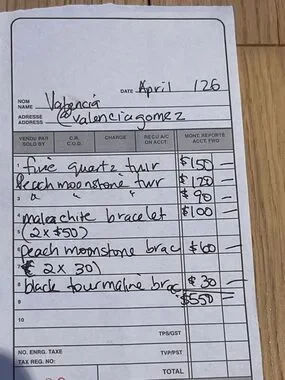 DATE April 1 26
NOM
NAME Valencia
ADRESSE
ADDRESS @valenciagomez
VENDU PAR
SOLD BY
C.R.
C.O.D.
CHARGE
REÇU A/C
ON ACCT.
MONT. REPORTÉ
ACCT. FWD
1 five quartz twr $150 —
2 Peach moonstone twr $120 —
3 " " " $90 —
4 malachite bracelet $100 —
5 (2 x $50)
6 peach moonstone brac $60 —
7 (2 x 30)
8 black tourmaline brac $30 —
9 $550 =
10
TPS/GST
NO. ENRG. TAXE
TAX REG. NO:
TVP/PST
TOTAL